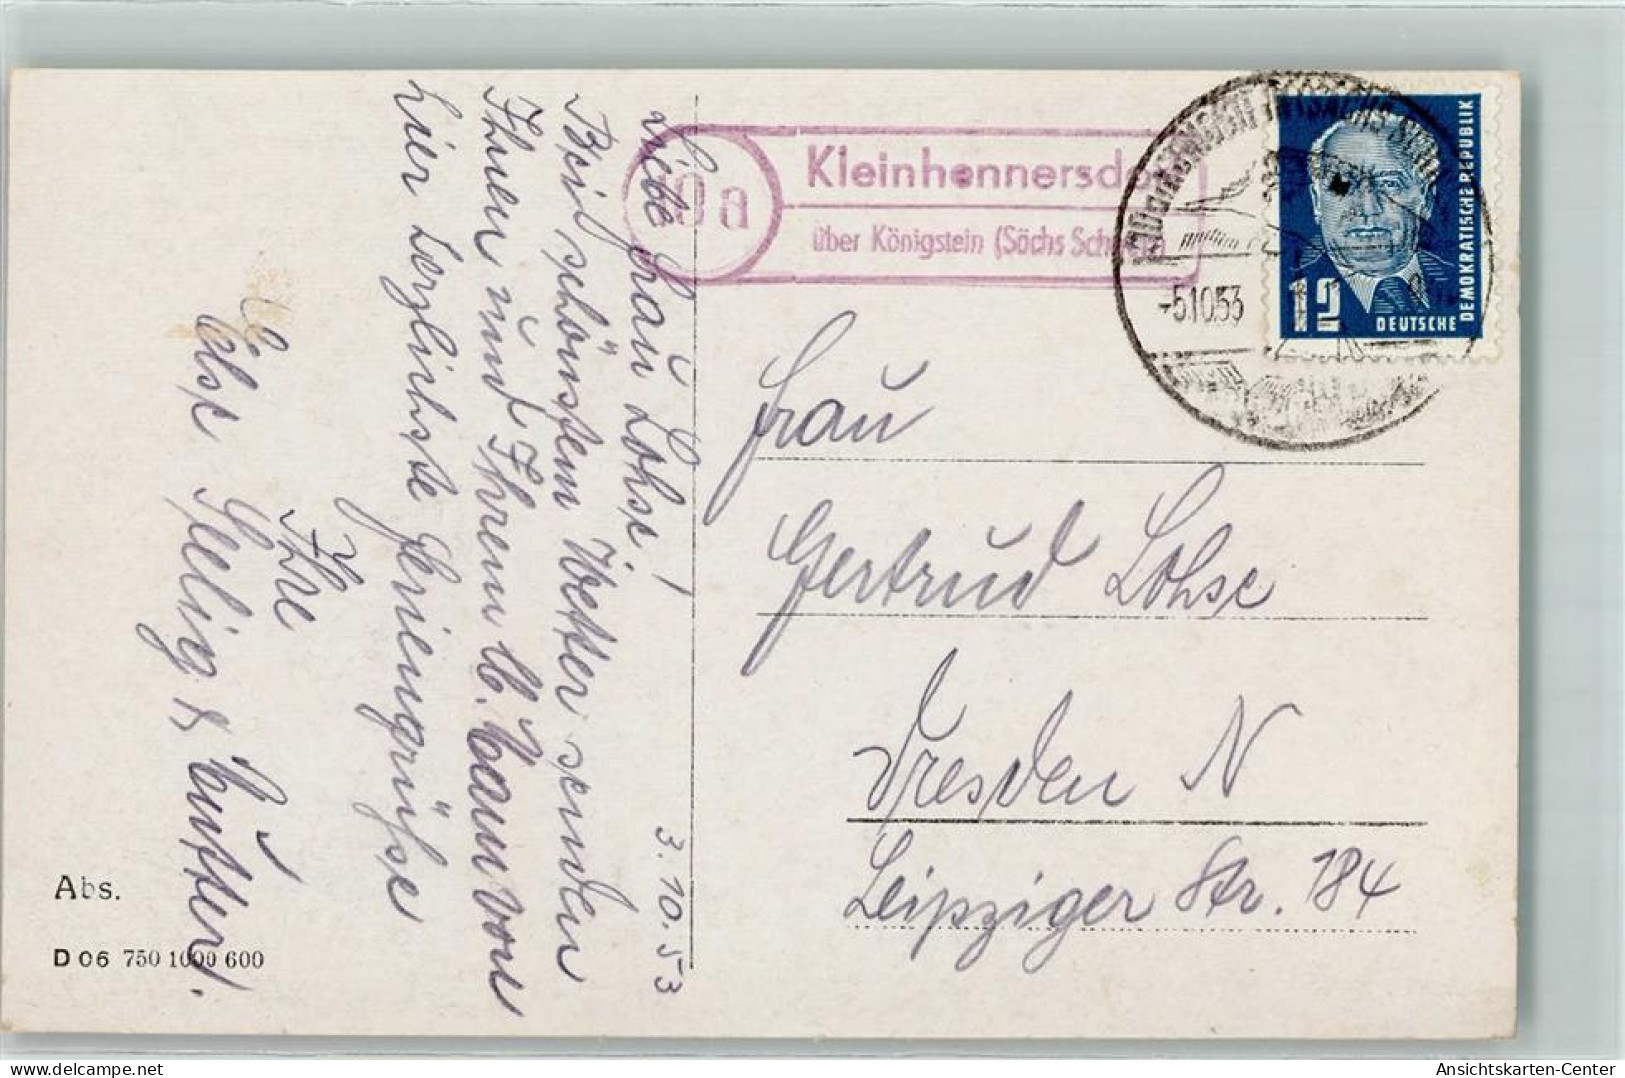 Liebe Frau Lohse!
Bei schönstem Wetter senden
Ihnen und Ihrem lb. Mann von
hier herzlichste Feriengrüße
Ihre
Else &
Mutter.
3.10.53
10a
Kleinhennersdorf
über Königstein (Sächs Schweiz)
-5.10.53
12
DEUTSCHE
DEMOKRATISCHE REPUBLIK
Frau
Gertrud Lohse
Dresden N
Leipziger Str. 184
Abs.
D 06 750 1000 600
Ansichtskarten-Center